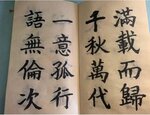 滿載而歸
千秋萬代
一意孤行
語無倫次